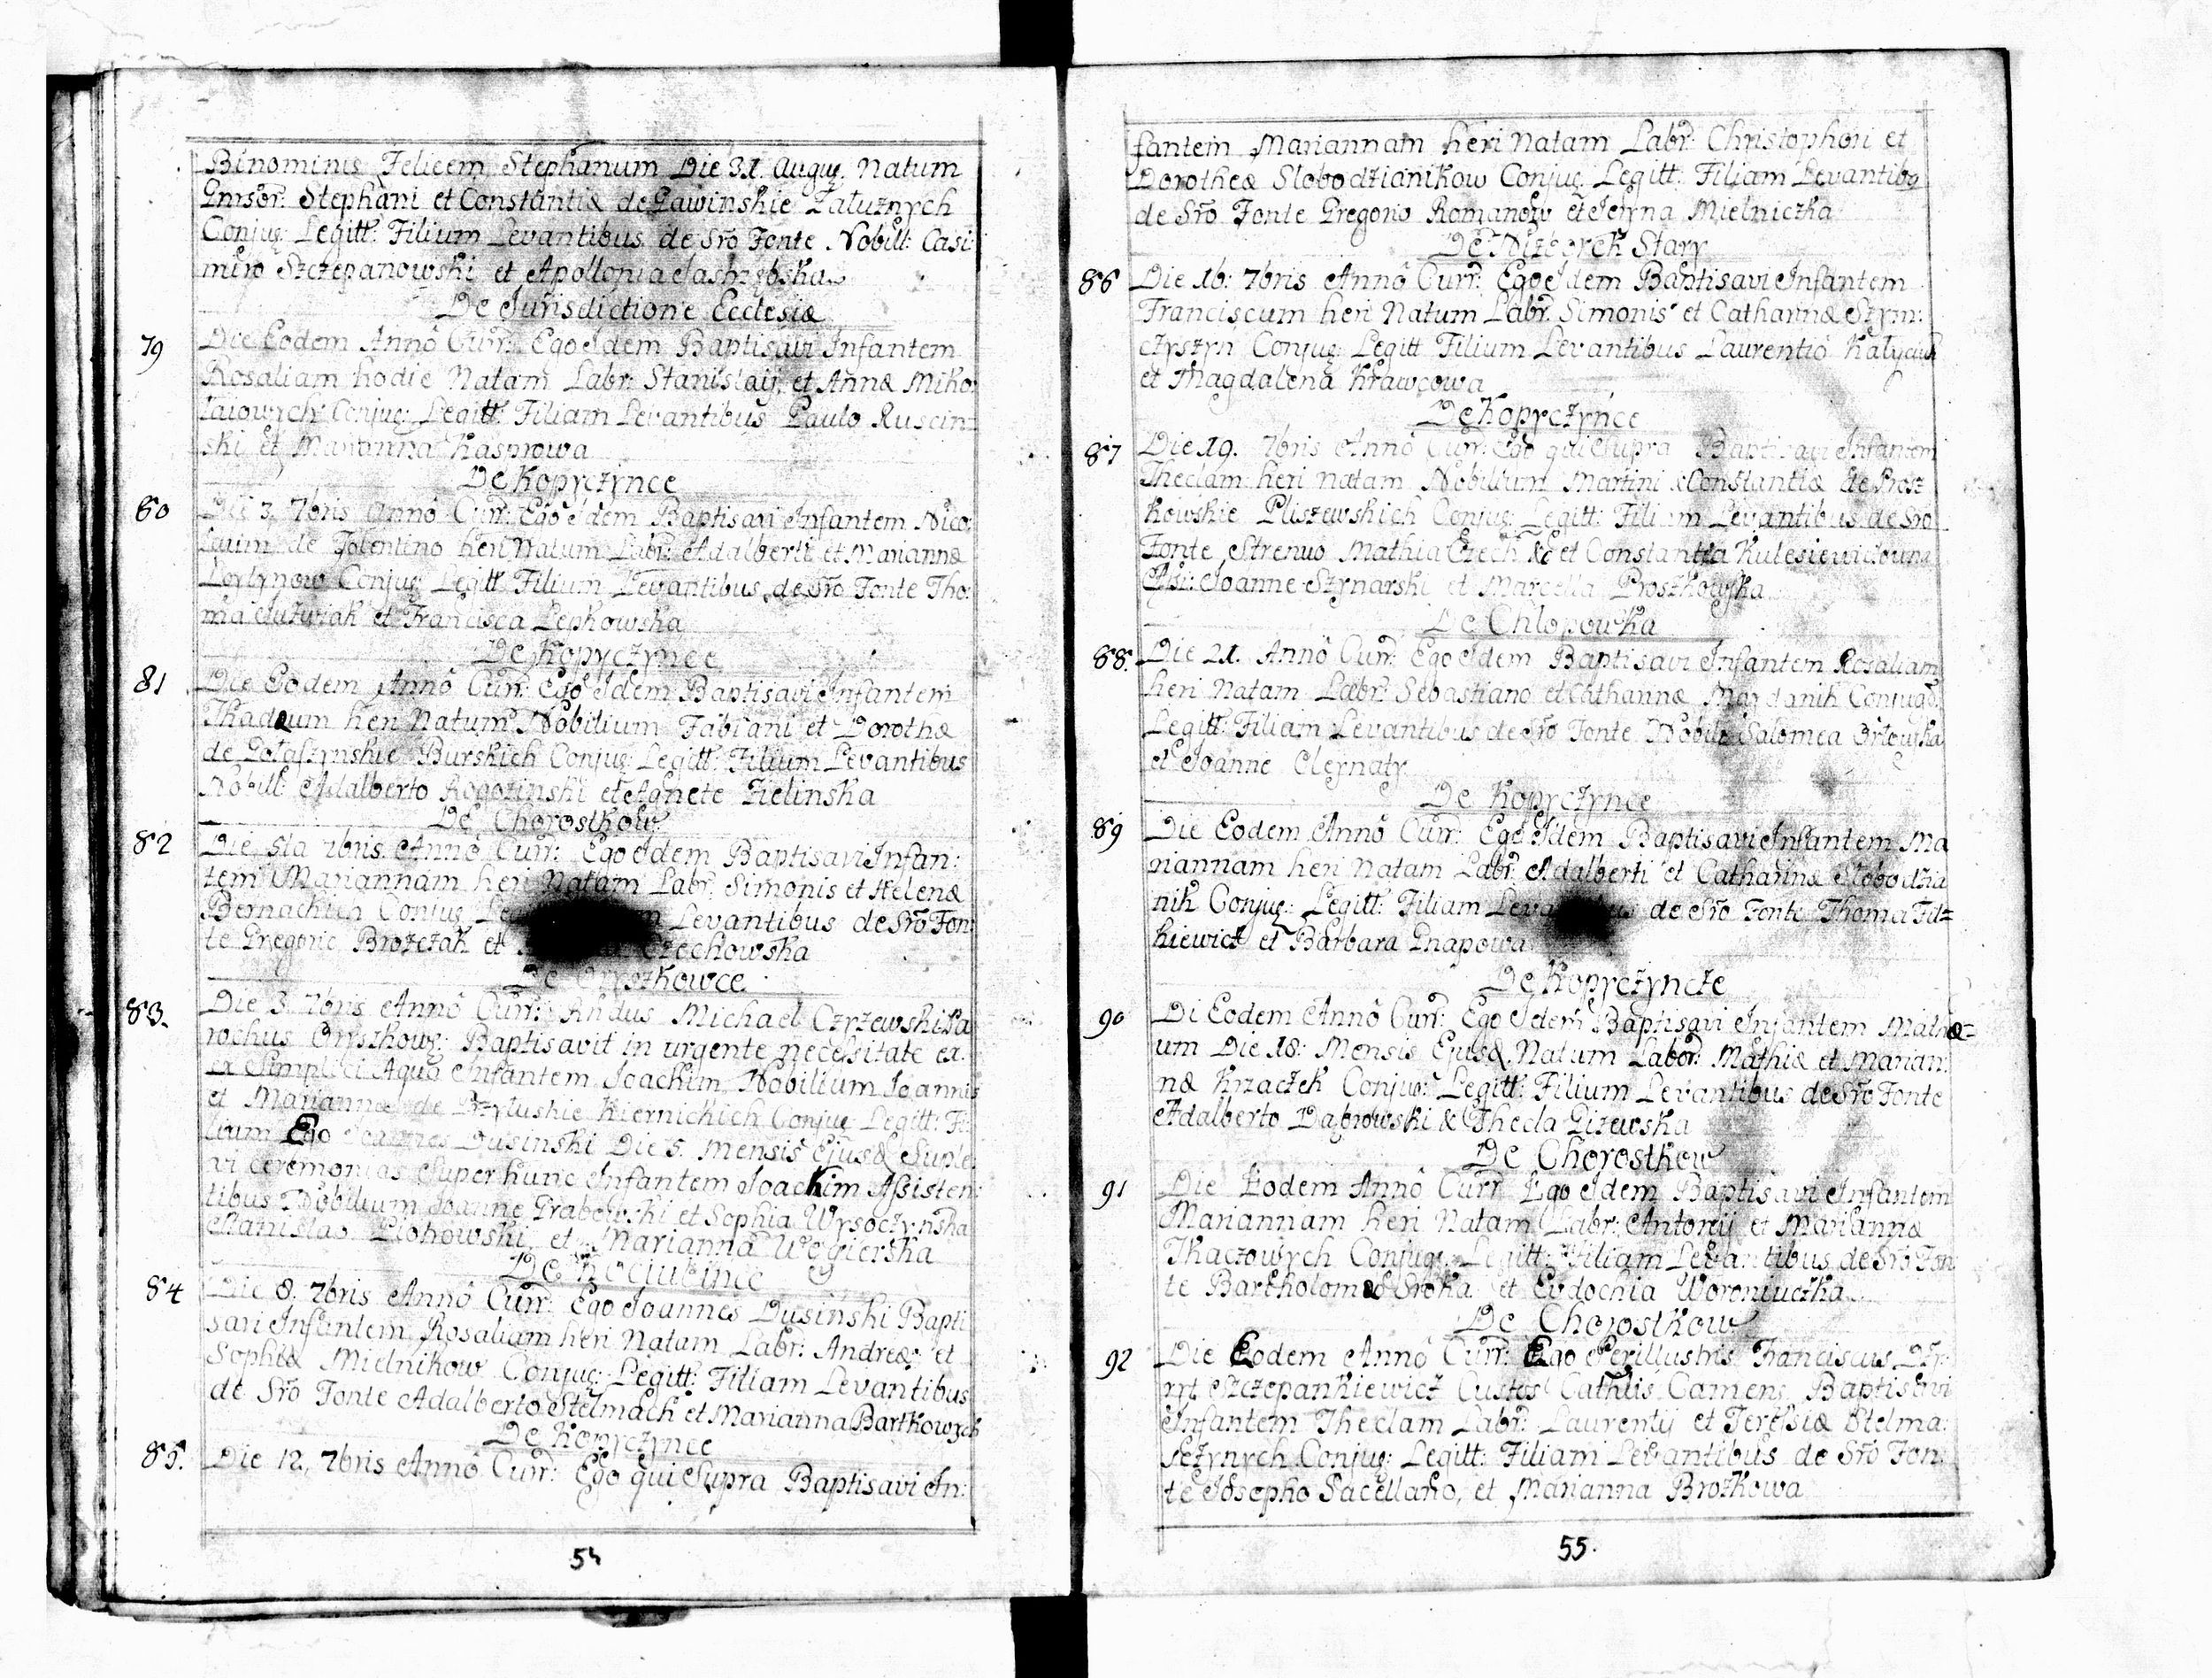 Binominis Felicem Stephanum Die 31. Augus. Natum
Gnrsor: Stephani et Constantiæ de Gawinskie Załuznych
Conjug: Legitt: Filium Levantibus de Sro Fonte Nobill: Casi
miro Szczepanowski et Apollonia Jastrzębska
De Jurisdictione Ecclesiæ
79 Die Eodem Annô Curr: Ego Idem Baptisavi Infantem
Rosaliam hodie Natam Labr: Stanislaij et Annæ Miko
łaiowych Conjug: Legitt: Filiam Levantibus Paulo Ruscin=
ski et Marianna Kasprowa
De Kopyczynce
80 Die 3. 7bris Annô Curr: Ego Idem Baptisavi Infantem Nico
laum de Tolentino heri Natum Labr: Adalberti et Mariannæ
Conjug: Legitt Filium Levantibus de Sro Fonte Tho:
ma et Francisca Lepkowska
De Kopyczynce
81 Die Eodem Annô Curr: Ego Idem Baptisavi Infantem
Thadæum heri Natum Nobilium Fabiani et Dorothæ
de Burskich Conjug: Legitt: Filium Levantibus
Nobill: Adalberto Rogozinski et Agnete Zielinska
De Chorostkow
82 Die 5ta 7bris Annô Curr: Ego Idem Baptisavi Infan:
tem Mariannam heri Natam Labr: Simonis et Helenæ
Bernackich Conjug Levantibus de Sro Fon:
te Gregorio Brozezak et Czechowska
De Oryszkowce
83. Die 3. 7bris Annô Curr: Rndus Michael Czyżewski Pa
rochus Oryszkows: Baptisavit in urgente necessitate ex
ex Simplici Aqua Infantem Joachim Nobilium Joannis
et Mariannæ de Kiernickich Conjug Legitt: Fi
lium Ego Joannes Dusinski Die 5. Mensis Ejusd Suple
vi Ceremonias Super hunc Infantem Joackim Assisten:
tibus Nobilium Joanne Grabowski et Sophia Wysoczynska
Stanislao Piohowski, et Marianna Wogierska
De Kociubince
84 Die 8. 7bris Annô Curr: Ego Joannes Dusinski Bapti
savi Infantem Rosaliam heri Natam Labr: Andreæ et
Sophiæ Mielnikow Conjug: Legitt: Filiam Levantibus
de Sro Fonte Adalberto Stelmach et Marianna Bartkowych
De Kopyczynce
85. Die 12. 7bris Annô Curr: Ego qui Supra Baptisavi In:
54
fantem Mariannam heri Natam Labr: Christophori et
Dorotheæ Slobodzianikow Conjug: Legitt: Filiam Levantibg
de Sro Fonte Gregorio Romanow et Jeryna Mielniczka
De Nizborek Stary
86 Die 16. 7bris Annô Curr: Ego Idem Baptisavi Infantem
Franciscum heri Natum Labr: Simonis et Catharinæ Szym:
czyszyn Conjug: Legitt Filium Levantibus Laurentio
et Magdalena Krawcowa
De Kopyczynce
87 Die 19. 7bris Annô Curr: Ego qui Supra Baptisavi Infantem
Theclam heri natam Nobilium Martini & Constantiæ de Prosz
kowskie Pliszewskich Conjug: Legitt: Filiam Levantibus de Sro
Fonte Strenuo Mathia Czech & et Constantia Kulesiewiczowna
Joanne Szynarski et Marcella Proszkowska
De Chłopowka
88. Die 21. Annô Curr: Ego Idem Baptisavi Infantem Rosaliam
heri Natam Labr: Sebastiano et Catharinæ Magdanik Conjugg
Legitt: Filiam Levantibus de Sro Fonte Nobili Salomea Orłowska
et Joanne Olejnaty
De Kopyczynce
89 Die Eodem Annô Curr: Ego Idem Baptisavi Infantem Ma
riannam heri Natam Labr: Adalberti et Catharinæ Slobodzia
nik Conjug: Legitt: Filiam de Sro Fonte Thoma Fil=
kiewicz et Barbara Gnapowa
De Kopyczyncze
90 Di Eodem Annô Curr: Ego Idem Baptisavi Infantem Mathæ=
um Die 18: Mensis Ejusd. Natum Labor: Mathiæ et Marian:
næ Krzaczek Conjug: Legitt: Filium Levantibus de Sro Fonte
Adalberto Dąbrowski & Thecla Gizewska
De Chorostkow
91 Die Eodem Annô Curr Ego Idem Baptisavi Infantem
Mariannam heri Natam Labr: Antonij et Mariannæ
Tkaczowych Conjug: Legitt: Filiam Levantibus de Sro Fon
te Bartholomæo Sroka et Eudochia Woroniuczka
De Chorostkow
92 Die Eodem Annô Curr: Ego Perillustris Franciscus
Szczepankiewicz Custos Cathlis Camens. Baptisavi
Infantem Theclam Labr: Laurentij et Teressiæ Stelma:
szczynych Conjug: Legitt: Filiam Levantibus de Sro Fon:
te Josepho Sacellano, et Marianna Brozkowa
55.